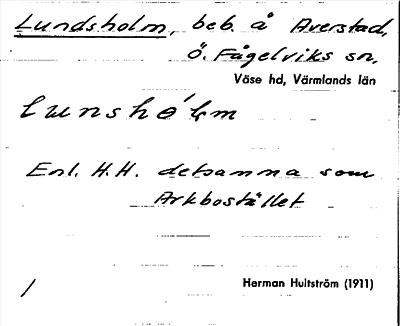 Lundsholm, beb. å Averstad,
Ö. Fågelviks sn,
Väse hd, Värmlands län
Enl. H.H. detsamma som
Arkbostället
/
Herman Hultström (1911)